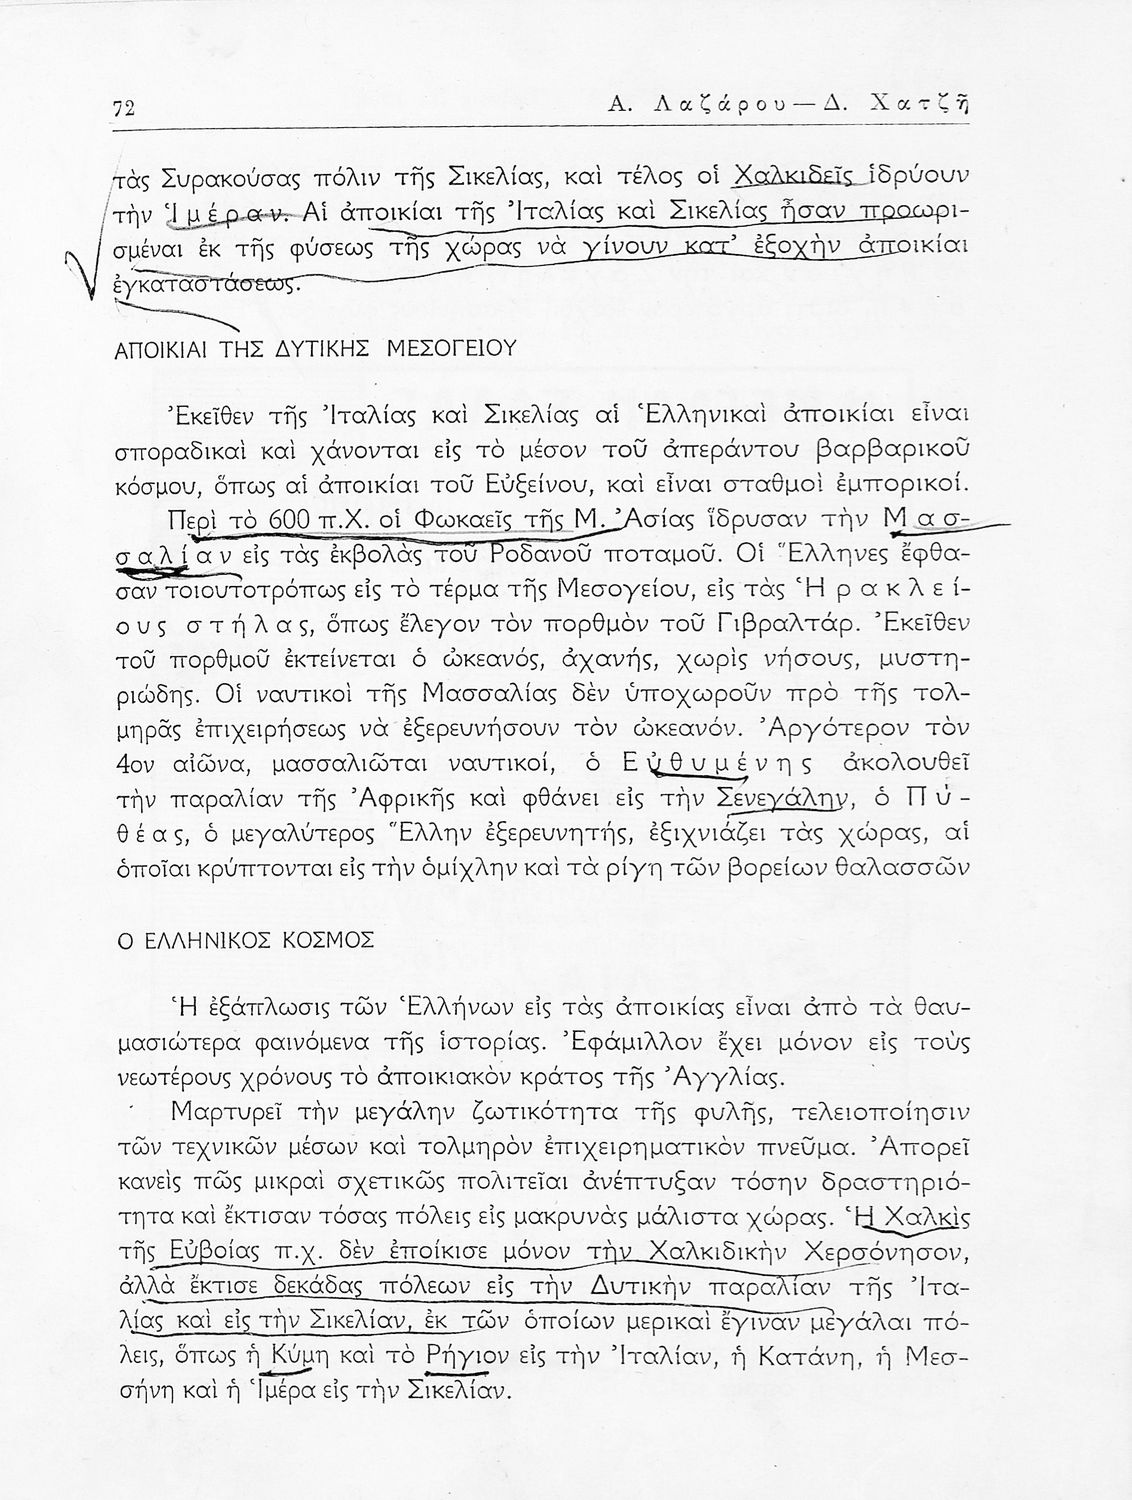 72
Α. Λαζάρου — Δ. Χατζῆ
τὰς Συρακούσας πόλιν τῆς Σικελίας, καὶ τέλος οἱ Χαλκιδεῖς ἱδρύουν
τὴν Ἱμέραν. Αἱ ἀποικίαι τῆς Ἰταλίας καὶ Σικελίας ἦσαν προωρι-
σμέναι ἐκ τῆς φύσεως τῆς χώρας νὰ γίνουν κατ’ ἐξοχὴν ἀποικίαι
ἐγκαταστάσεως.
ΑΠΟΙΚΙΑΙ ΤΗΣ ΔΥΤΙΚΗΣ ΜΕΣΟΓΕΙΟΥ
Ἐκεῖθεν τῆς Ἰταλίας καὶ Σικελίας αἱ Ἑλληνικαὶ ἀποικίαι εἶναι
σποραδικαὶ καὶ χάνονται εἰς τὸ μέσον τοῦ ἀπεράντου βαρβαρικοῦ
κόσμου, ὅπως αἱ ἀποικίαι τοῦ Εὐξείνου, καὶ εἶναι σταθμοὶ ἐμπορικοί.
Περὶ τὸ 600 π.Χ. οἱ Φωκαεῖς τῆς Μ. Ἀσίας ἵδρυσαν τὴν Μασ-
σαλίαν εἰς τὰς ἐκβολὰς τοῦ Ροδανοῦ ποταμοῦ. Οἱ Ἕλληνες ἔφθα-
σαν τοιουτοτρόπως εἰς τὸ τέρμα τῆς Μεσογείου, εἰς τὰς Ἡρακλεί-
ους στήλας, ὅπως ἔλεγον τὸν πορθμὸν τοῦ Γιβραλτάρ. Ἐκεῖθεν
τοῦ πορθμοῦ ἐκτείνεται ὁ ὠκεανός, ἀχανής, χωρὶς νήσους, μυστη-
ριώδης. Οἱ ναυτικοὶ τῆς Μασσαλίας δὲν ὑποχωροῦν πρὸ τῆς τολ-
μηρᾶς ἐπιχειρήσεως νὰ ἐξερευνήσουν τὸν ὠκεανόν. Ἀργότερον τὸν
4ον αἰῶνα, μασσαλιῶται ναυτικοί, ὁ Εὐθυμένης ἀκολουθεῖ
τὴν παραλίαν τῆς Ἀφρικῆς καὶ φθάνει εἰς τὴν Σενεγάλην, ὁ Πυ-
θέας, ὁ μεγαλύτερος Ἕλλην ἐξερευνητής, ἐξιχνιάζει τὰς χώρας, αἱ
ὁποῖαι κρύπτονται εἰς τὴν ὁμίχλην καὶ τὰ ρίγη τῶν βορείων θαλασσῶν
Ο ΕΛΛΗΝΙΚΟΣ ΚΟΣΜΟΣ
Ἡ ἐξάπλωσις τῶν Ἑλλήνων εἰς τὰς ἀποικίας εἶναι ἀπὸ τὰ θαυ-
μασιώτερα φαινόμενα τῆς ἱστορίας. Ἐφάμιλλον ἔχει μόνον εἰς τοὺς
νεωτέρους χρόνους τὸ ἀποικιακὸν κράτος τῆς Ἀγγλίας.
Μαρτυρεῖ τὴν μεγάλην ζωτικότητα τῆς φυλῆς, τελειοποίησιν
τῶν τεχνικῶν μέσων καὶ τολμηρὸν ἐπιχειρηματικὸν πνεῦμα. Ἀπορεῖ
κανεὶς πῶς μικραὶ σχετικῶς πολιτεῖαι ἀνέπτυξαν τόσην δραστηριό-
τητα καὶ ἔκτισαν τόσας πόλεις εἰς μακρυνὰς μάλιστα χώρας. Ἡ Χαλκὶς
τῆς Εὐβοίας π.χ. δὲν ἐποίκισε μόνον τὴν Χαλκιδικὴν Χερσόνησον,
ἀλλὰ ἔκτισε δεκάδας πόλεων εἰς τὴν Δυτικὴν παραλίαν τῆς Ἰτα-
λίας καὶ εἰς τὴν Σικελίαν, ἐκ τῶν ὁποίων μερικαὶ ἔγιναν μεγάλαι πό-
λεις, ὅπως ἡ Κύμη καὶ τὸ Ρήγιον εἰς τὴν Ἰταλίαν, ἡ Κατάνη, ἡ Μεσ-
σήνη καὶ ἡ Ἱμέρα εἰς τὴν Σικελίαν.